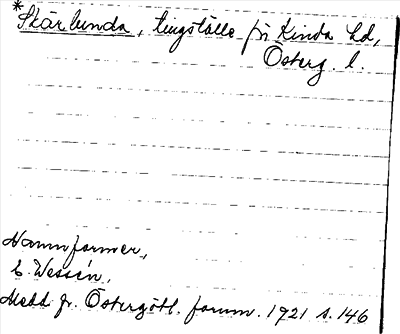 *Skärlunda, tingställe för Kinda hd,
Österg. l.
Namnformer,
E. Wessén,
Medd fr. Östergötl. fornm. 1921 s. 146